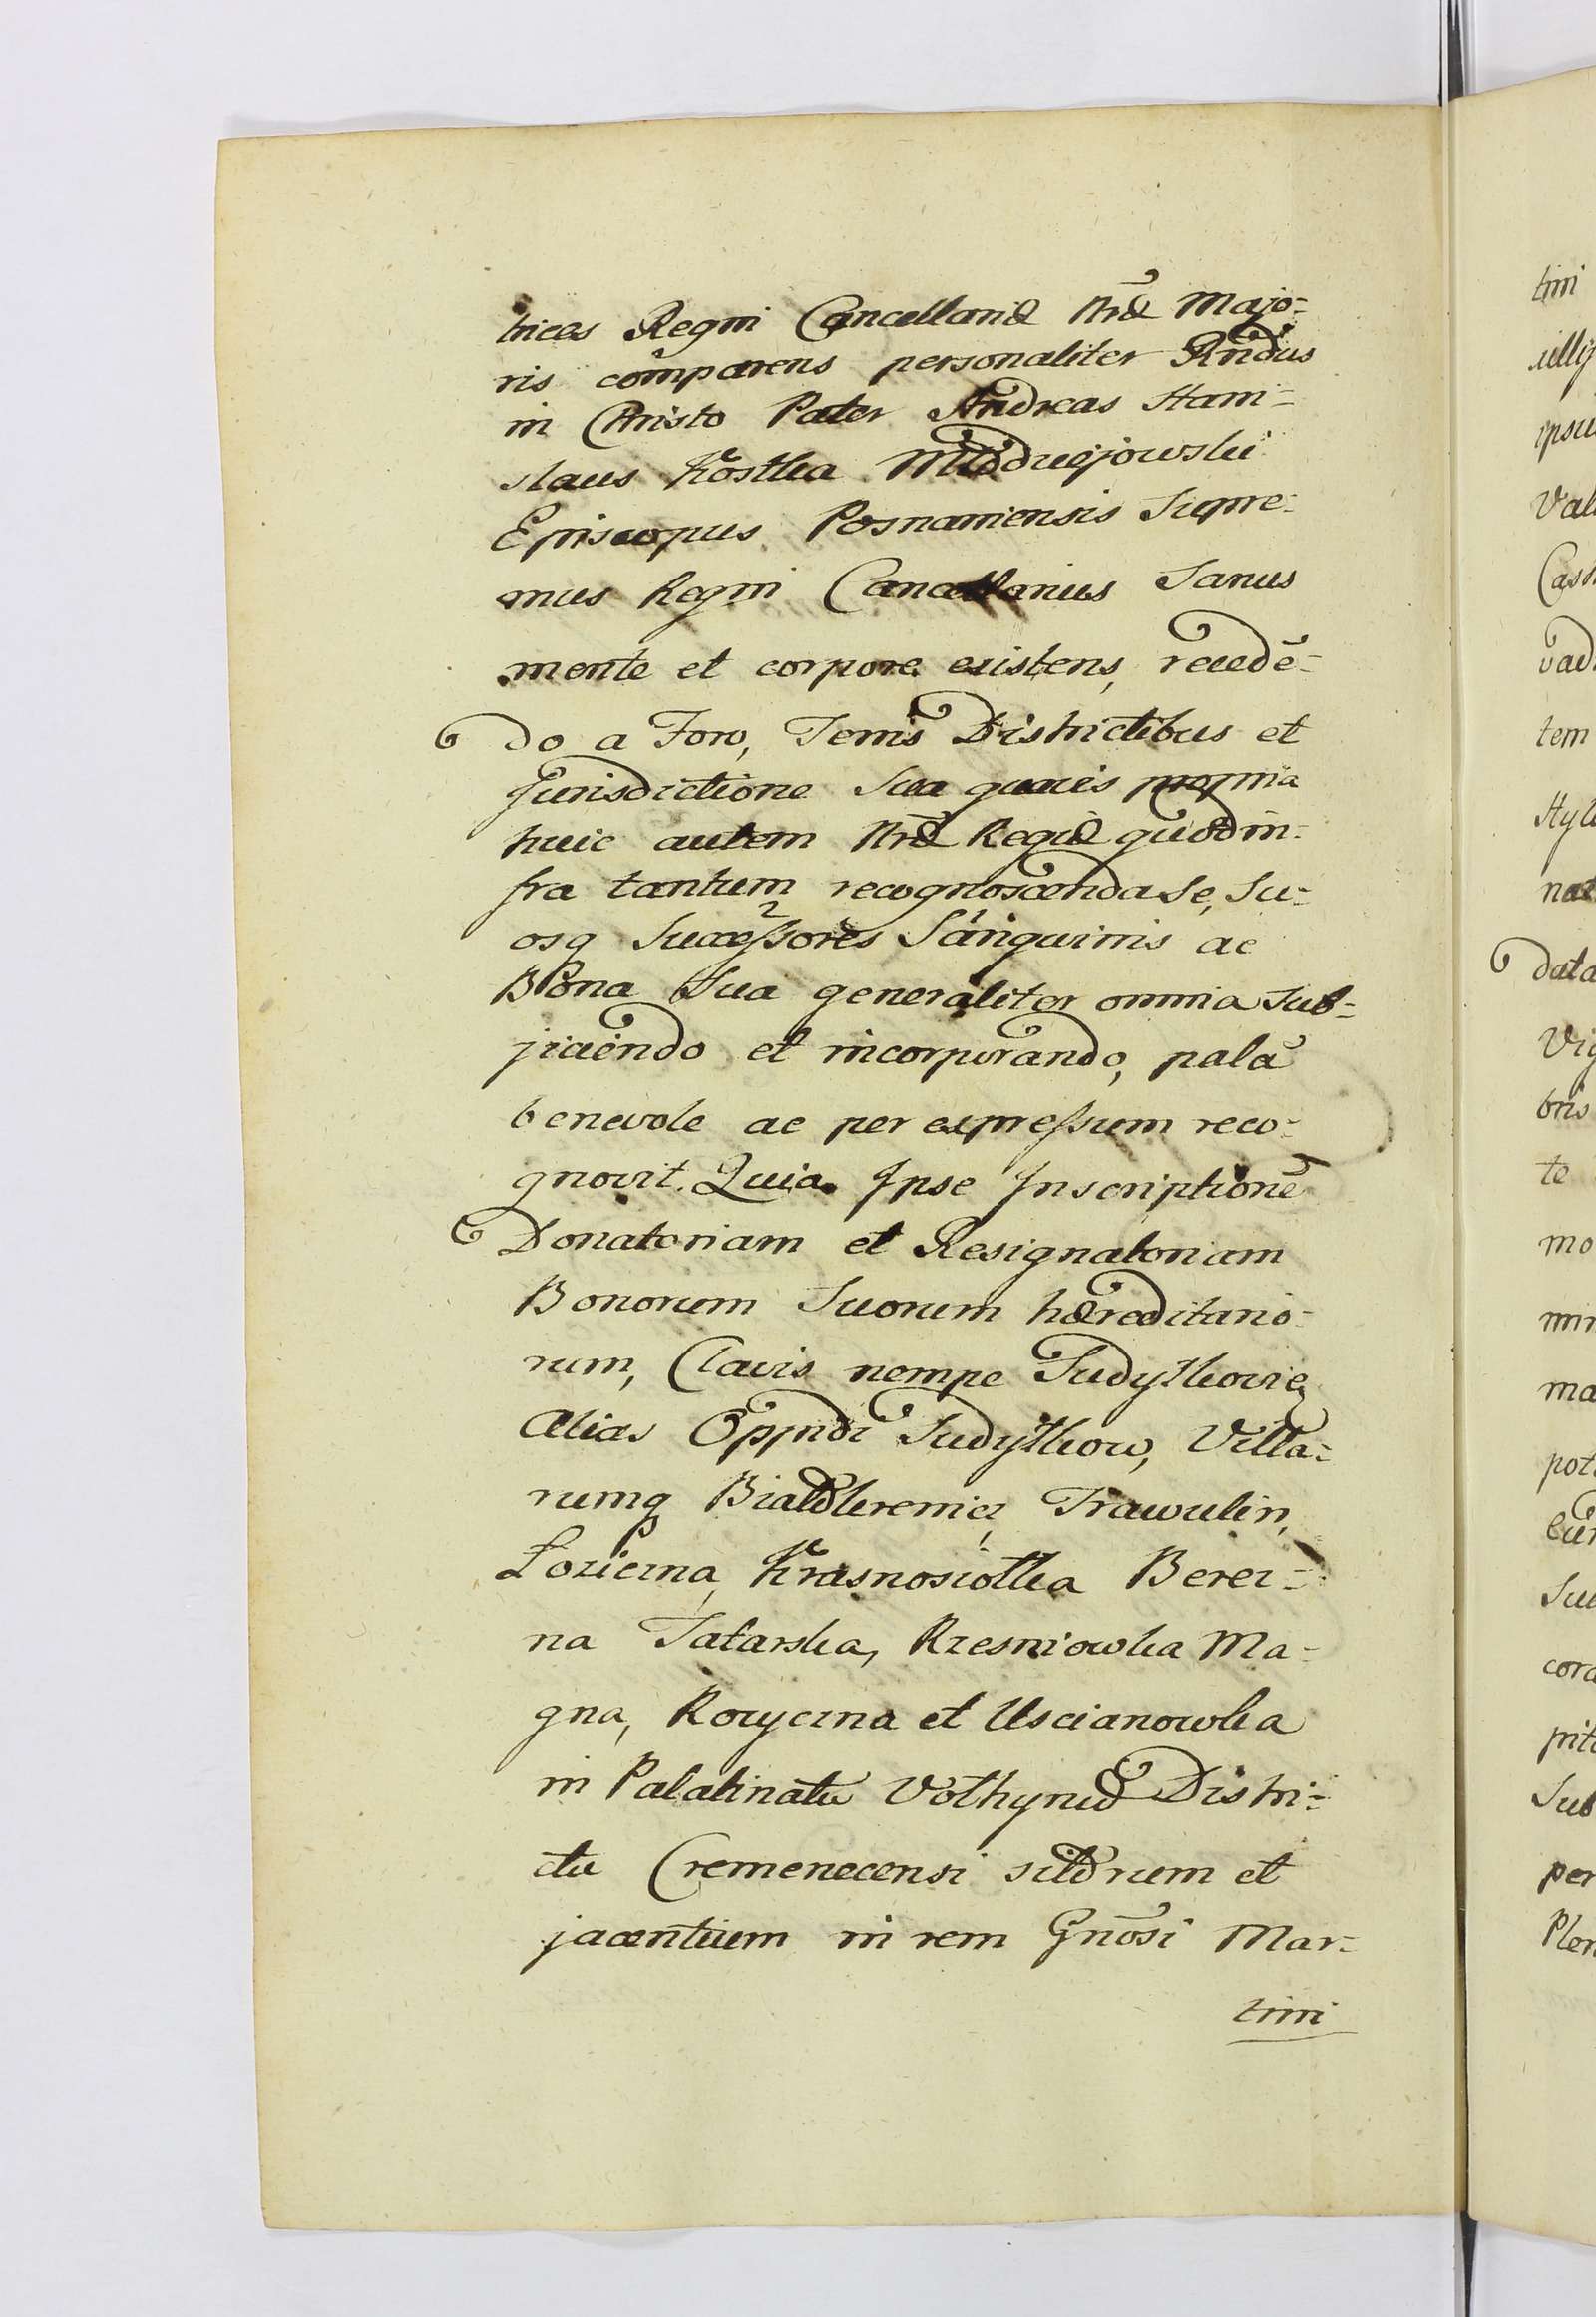 trices Regni Cancellariæ Nræ Majo=
ris compârens personaliter Rñdus
in Christo Pater Andreas Stani=
slaus Kostka Młodziejowski
Episcopus Posnaniensis Supre=
mus Regni Cancellarius Sanus
mente et corpore existens, recedē=
do a Foro, Terris Districtibus et
Jurisdictione sua quavis propria
huic autem Nræ Regiæ quod in=
fra tantum recognoscenda Se, Su=
osq Successores Sanguinis ac
Bona Sua generaliter omnia Sub=
jiciendo et incorporando, palā
benevole ac per expressum reco=
gnovit. Quia Ipse Inscriptionē
Donatoriam et Resignatoriam
Bonorum Suorum hæreditario=
rum, Clavis nempe Sudyłkovien
alias Oppidi Sudyłkow, Villa=
rumq Białokrenicz, Trawulin,
Łoziczna, Krasnosiołka Berez=
na Tatarska, Rzesniowka Ma=
gna, Rowyczna et Uscianowka
in Palatinatu Volhyniæ Distri=
ctu Cremenecensi sitōrum et
jacentium in rem Gnōsi Mar=
tini
tini
ipsu
Val
Cass
vad
tem
Styl
nat
data
Vig
bris
te
mo
ma
pot
Sub
per
Plen